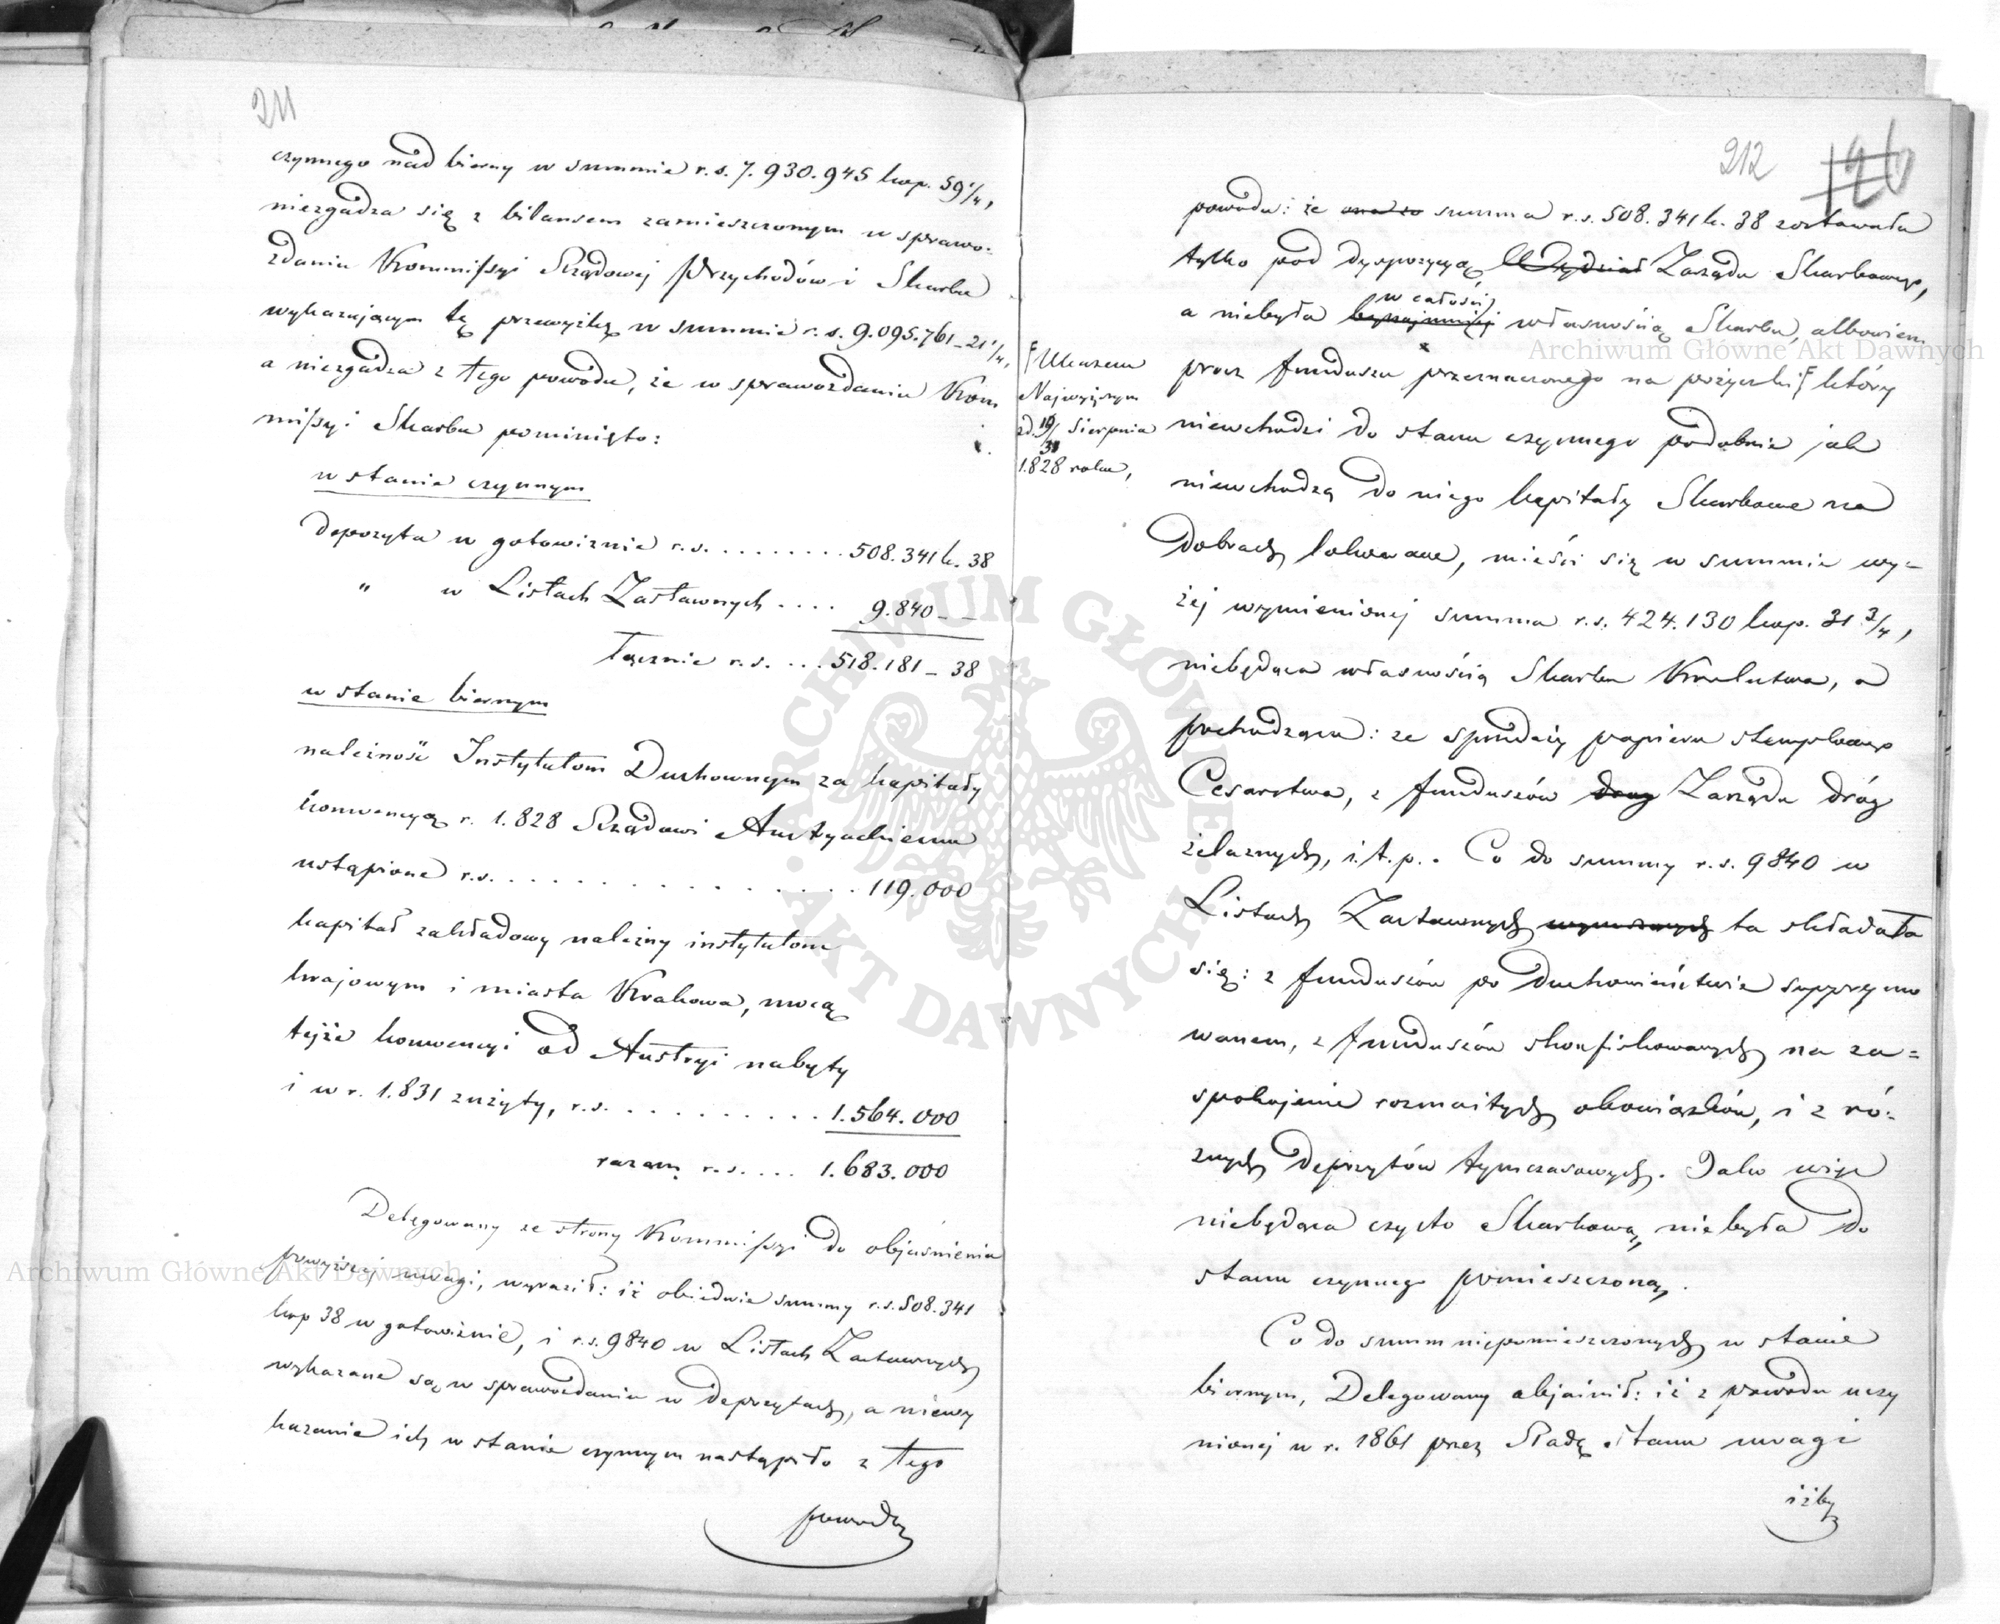 211
czynnego nad bierny w summie r.s. 7.930.945 kop. 59 1/4,
niezgadza się z bilansem zamieszczonym w sprawo=
zdaniu Kommissyi Rządowej Przychodów i Skarbu
wykazującym tę przewyżkę w summie r.s. 9.095.761_21 1/4,
a niezgadza z tego powodu, że w sprawozdaniu Kom
missyi Skarbu pominięto:
w stanie czynnym
depozyta w gotowiznie r.s. ........ 508.341 k. 38
" w Listach Zastawnych .... 9.840 _ _
łącznie r.s. ... 518.181 _ 38
w stanie biernym
należność Instytutom Duchownym za kapitały
konwencyą r. 1.828 Rządowi Austryackiemu
ustąpione r.s. ................ 119.000
kapitał zakładowy należny instytutom
krajowym i miasta Krakowa, mocą
tejże konwencyi od Austryi nabyty
i w r. 1.831 zużyty, r.s. .......... 1.564.000
razem r.s. .... 1.683.000
Delegowany ze strony Kommissyi do objaśnienia
powyższej uwagi, wyraził: iż obiedwie summy r.s. 508.341
kop 38 w gotowiznie, i r.s. 9840 w Listach Zastawnych
wykazane są w sprawozdaniu w depozytach, a niewy
kazanie ich w stanie czynnym nastąpiło z tego
powodu
212
126
powodu: że summa r.s. 508.341 k. 38 zostawała
tylko pod dyspozycyą Wydział Zarządu Skarbowego,
w całości
a niebyła bynajmniej własnością Skarbu, albowiem
prócz funduszu przeznaczonego na pożyczki F który
F Ukazem
Najwyższym
z d. 19/31 Sierpnia
1.828 roku,
niewchodzi do stanu czynnego podobnie jak
niewchodzą do niego kapitały Skarbowe na
dobrach lokowane, mieści się w summie wy=
żej wymienionej summa r.s. 424.130 kop. 31 3/4,
niebędąca własnością Skarbu Królestwa, a
pochodząca: ze sprzedaży papieru stemplowego
Cesarstwa, z funduszów drog Zarządu dróg
żelaznych, i.t.p.. Co do summy r.s. 9840 w
Listach Zastawnych ta składała
się: z funduszów po duchowieństwie supprymo
wanem, z funduszów skonfiskowanych na za=
spokojenie rozmaitych obowiązków, i z ró=
żnych depozytów tymczasowych. Jako więc
niebędąca czysto Skarbową, niebyła do
stanu czynnego pomieszczoną.
Co do summ niepomieszczonych w stanie
biernym, Delegowany objaśnił: iż z powodu uczy
nionej w r. 1861 przez Radę Stanu uwagi
iżby
Archiwum Główne Akt Dawnych
Archiwum Główne Akt Dawnych
ARCHIWUM GŁÓWNE AKT DAWNYCH